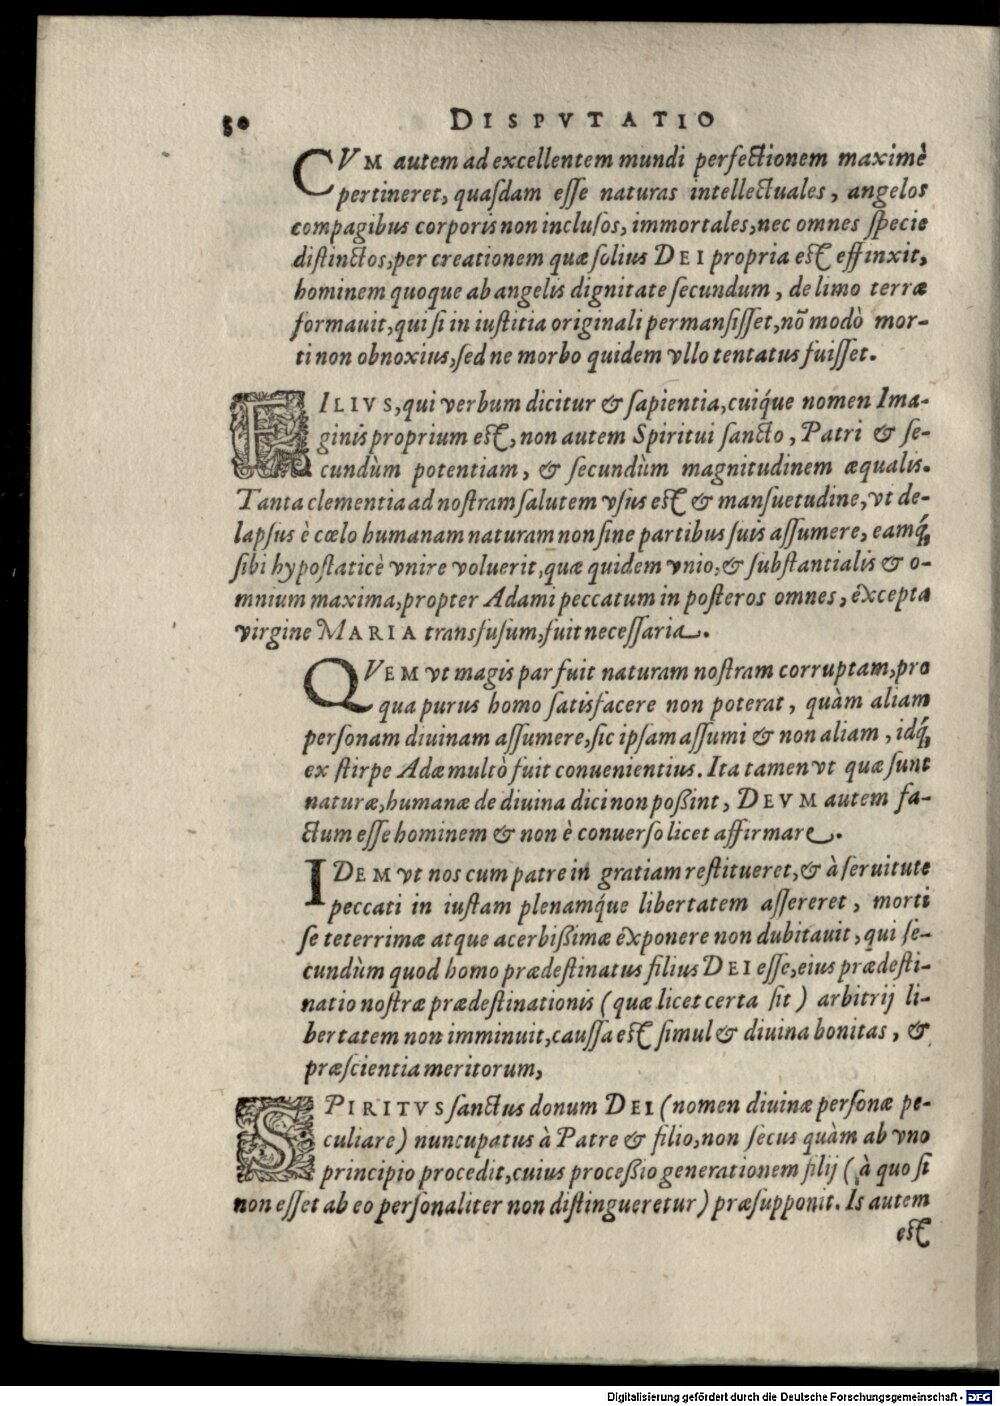 50 DISPVTATIO
CVM autem ad excellentem mundi perfectionem maximè
pertineret, quaſdam eſſe naturas intellectuales, angelos
compagibus corporis non incluſos, immortales, nec omnes ſpecie
diſtinctos, per creationem quæ ſolius DEI propria eſt effinxit,
hominem quoque ab angelis dignitate ſecundum, de limo terræ
formauit, qui ſi in iuſtitia originali permanſiſſet, nõ modò mor-
ti non obnoxius, ſed ne morbo quidem vllo tentatus fuiſſet.
FILIVS, qui verbum dicitur & ſapientia, cuiq́ue nomen Ima-
ginis proprium eſt, non autem Spiritui ſancto, Patri & ſe-
cundùm potentiam, & ſecundùm magnitudinem æqualis.
Tanta clementia ad noſtram ſalutem vſus eſt & manſuetudine, vt de-
lapſus è cœlo humanam naturam non ſine partibus ſuis aſſumere, eamq́;
ſibi hypoſtaticè vnire voluerit, quæ quidem vnio, & ſubſtantialis & o-
mnium maxima, propter Adami peccatum in poſteros omnes, excepta
virgine MARIA transfuſum, fuit neceſſaria.
QVEM vt magis par fuit naturam noſtram corruptam, pro
qua purus homo ſatisfacere non poterat, quàm aliam
perſonam diuinam aſſumere, ſic ipſam aſſumi & non aliam, idq́;
ex ſtirpe Adæ multò fuit conuenientius. Ita tamen vt quæ ſunt
naturæ, humanæ de diuina dici non poßint, DEVM autem fa-
ctum eſſe hominem & non è conuerſo licet affirmare.
IDEM vt nos cum patre in gratiam reſtitueret, & à ſeruitute
peccati in iuſtam plenamq́ue libertatem aſſereret, morti
ſe teterrimæ atque acerbißimæ exponere non dubitauit, qui ſe-
cundùm quod homo prædeſtinatus filius DEI eſſe, eius prædeſti-
natio noſtræ prædeſtinationis (quæ licet certa ſit) arbitrij li-
bertatem non imminuit, cauſſa eſt ſimul & diuina bonitas, &
præſcientia meritorum,
SPIRITVS ſanctus donum DEI (nomen diuinæ perſonæ pe-
culiare) nuncupatus à Patre & filio, non ſecus quàm ab vno
principio procedit, cuius proceßio generationem filij (à quo ſi
non eſſet ab eo perſonaliter non diſtingueretur) præſupponit. Is autem
eſt
Digitalisierung gefördert durch die Deutsche Forschungsgemeinschaft - DFG